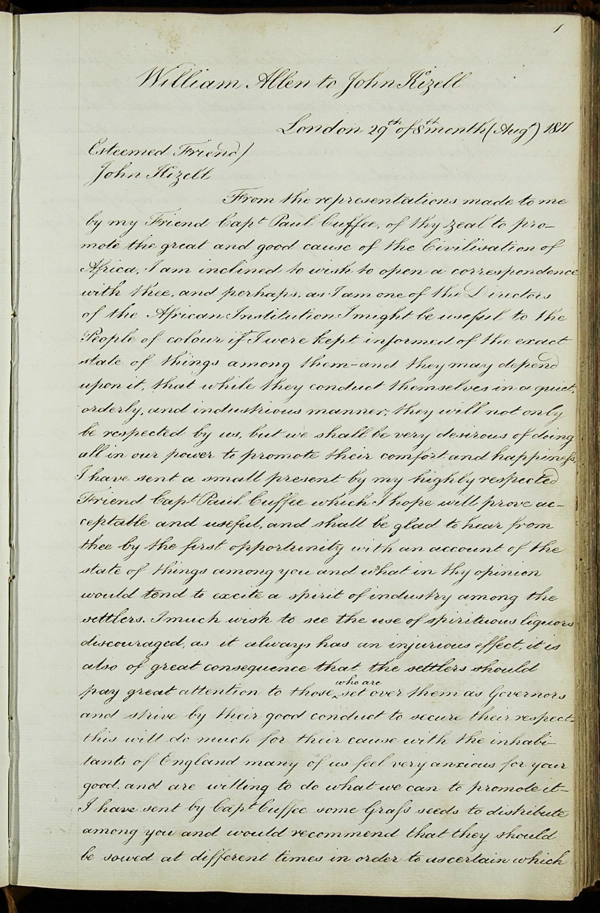 1
William Allen to John Kizell
London 29th of 8th month (Augt) 1811
Esteemed Friend/
John Kizell
From the representations made to me
by my Friend Capt Paul Cuffee, of thy zeal to pro-
mote the great and good cause of the Civilisation of
Africa, I am inclined to wish to open a correspondence
with thee, and perhaps, as I am one of the Directors
of the African Institution I might be useful to the
People of colour if I were kept informed of the exact
state of things among them—and they may depend
upon it, that while they conduct themselves in a quiet,
orderly, and industrious manner; they will not only
be respected by us, but we shall be very desirous of doing
all in our power to promote their comfort and happiness.
I have sent a small present by my highly respected
Friend Capt Paul Cuffee which I hope will prove ac-
ceptable and useful, and shall be glad to hear from
thee by the first opportunity with an account of the
state of things among you and what in thy opinion
would tend to excite a spirit of industry among the
settlers. I much wish to see the use of spirituous liquors
discouraged, as it always has an injurious effect, it is
also of great consequence that the settlers should
pay great attention to those who are set over them as Governors
and strive by their good conduct to secure their respect—
this will do much for their cause with the inhabi-
tants of England many of us feel very anxious for your
good, and are willing to do what we can to promote it—
I have sent by Capt Cuffee some Grass seeds to distribute
among you and would recommend that they should
be sowed at different times in order to ascertain which